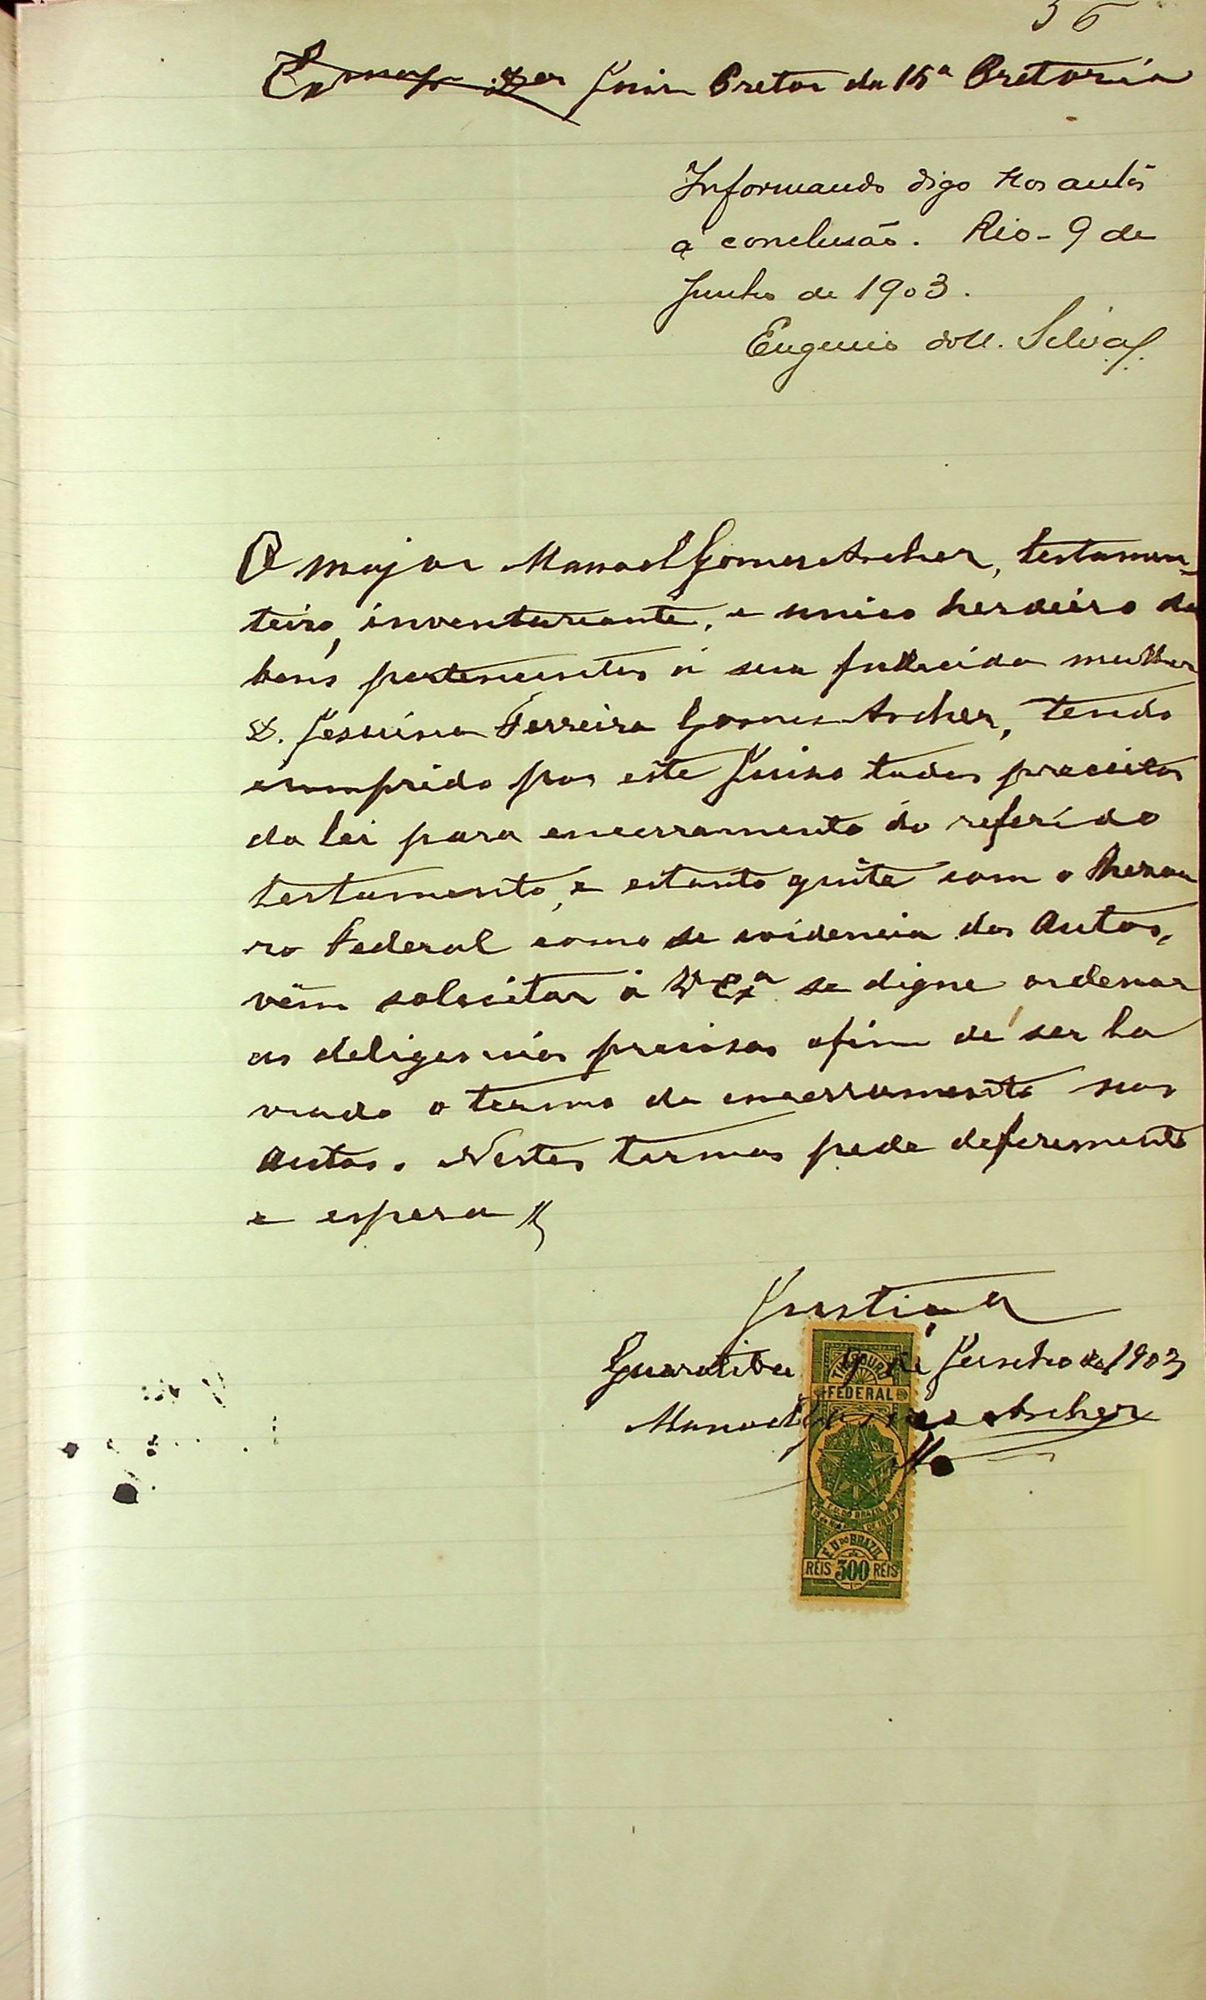 56
Exmo Snr Dor Juiz Pretor da 15ª Pretoria
Informando digo Nos autos
a conclusão. Rio - 9 de
Junho de 1903.
Eugenio da Silva
O major Manoel Gomes Archer, testamen-
teiro, inventariante, e unico herdeiro de
bens pertencentes á sua fallecida mulher
D. Jesuina Ferreira Gomes Archer, tendo
cumprido por este Juiso todos preceitos
da lei para encerramento do referido
testamento, e estanto quite com o Thesou
ro Federal como se evidencia dos Autos,
vêm solicitar á V Exª se digne ordenar
as deligencias precisas afim de ser la
vrado o termo de encerramento nos
Autos. Nestes termos pede deferimento
e espera
Justiça
Guaratiba 9 de Junho de 1903
Manoel Gomes Archer
THESOURO
FEDERAL
E.U. DO BRAZIL
15 DE NOVEMBRO DE 1889
E U DO BRAZIL
REIS 300 REIS